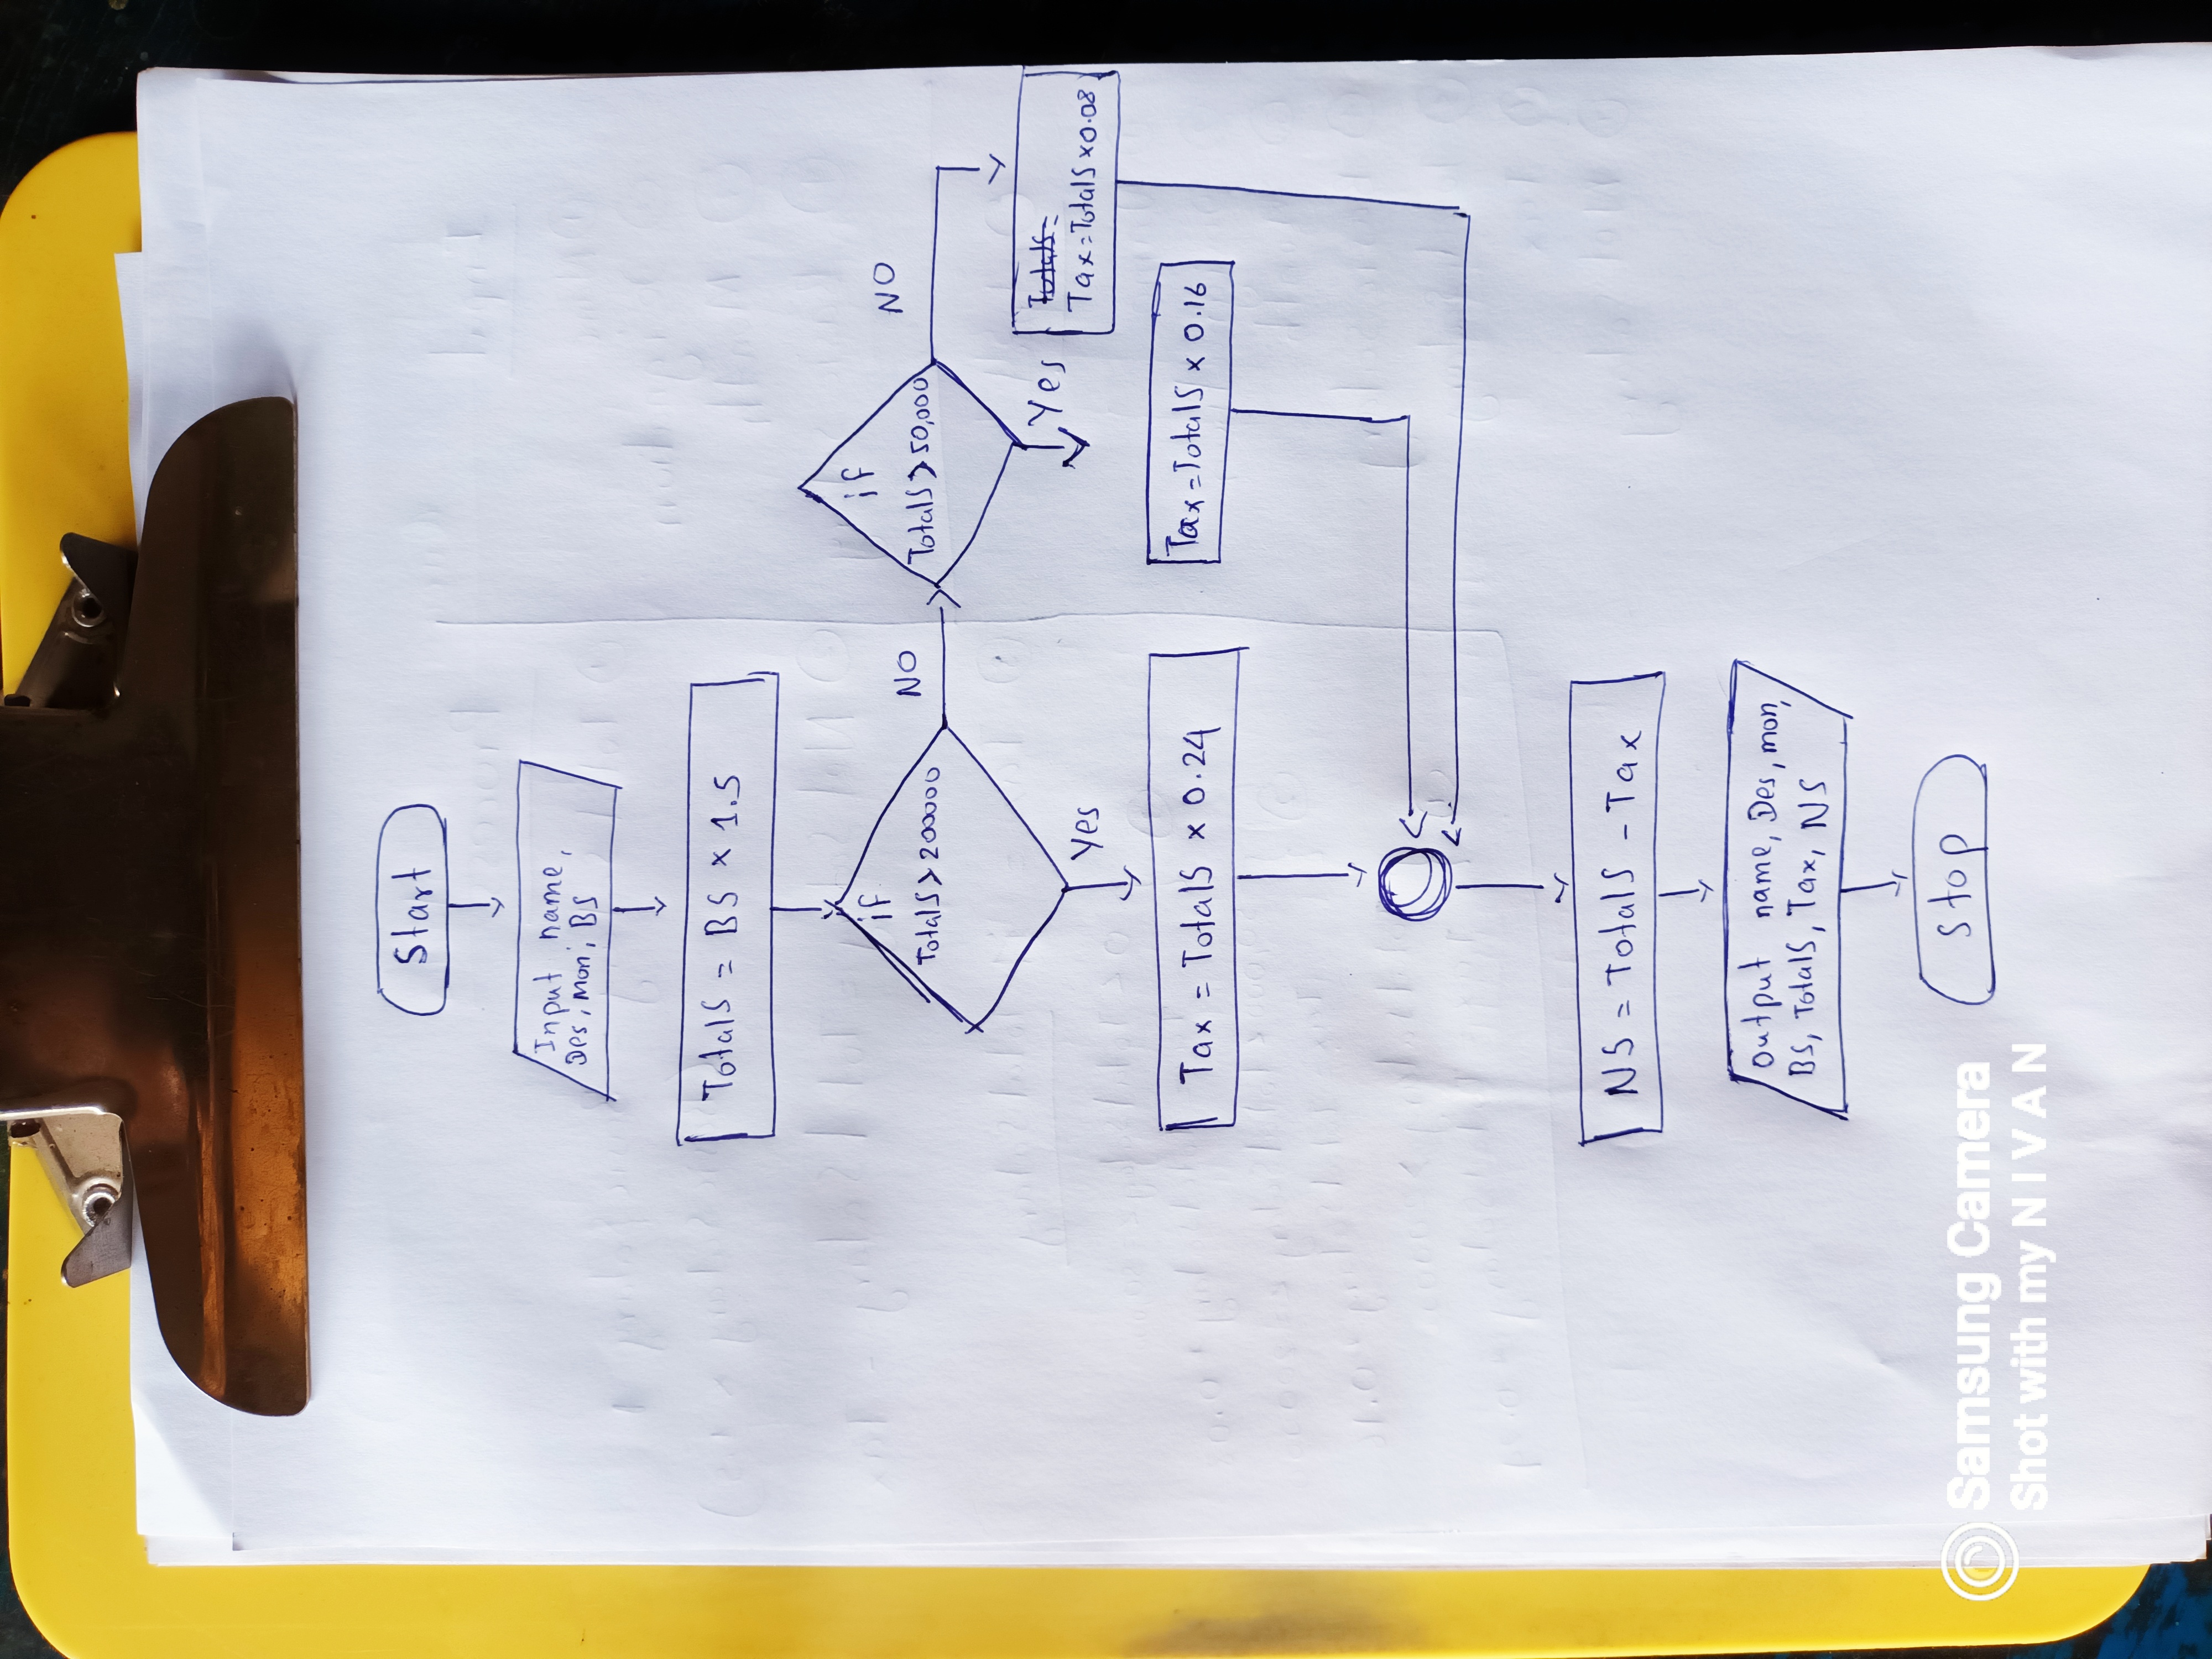 Start
Input name,
Des, mon, BS
TotalS = BS × 1.5
if
TotalS > 200000
NO
if
TotalS > 50,000
NO
Yes
Yes
Tax = TotalS × 0.08
Tax = TotalS × 0.24
Tax = TotalS × 0.16
NS = TotalS - Tax
Output name, Des, mon,
BS, TotalS, Tax, NS
Stop
Samsung Camera
Shot with my N I V A N